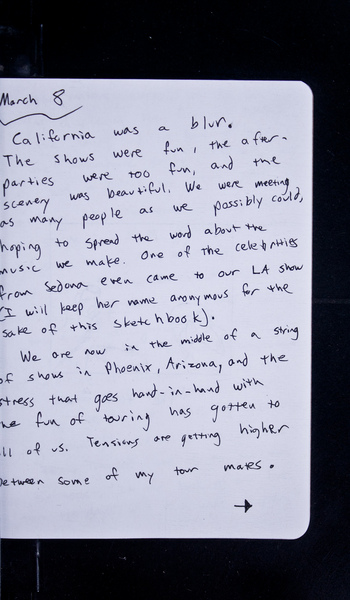 March 8
California was a blur.
The shows were fun, the after-
parties were too fun, and the
scenery was beautiful. We were meeting
as many people as we possibly could,
hoping to spread the word about the
music we make. One of the celebrities
from Sedona even came to our LA show
(I will keep her name anonymous for the
sake of this sketchbook).
We are now in the middle of a string
of shows in Phoenix, Arizona, and the
stress that goes hand-in-hand with
the fun of touring has gotten to
all of us. Tensions are getting higher
between some of my tour mates.
→